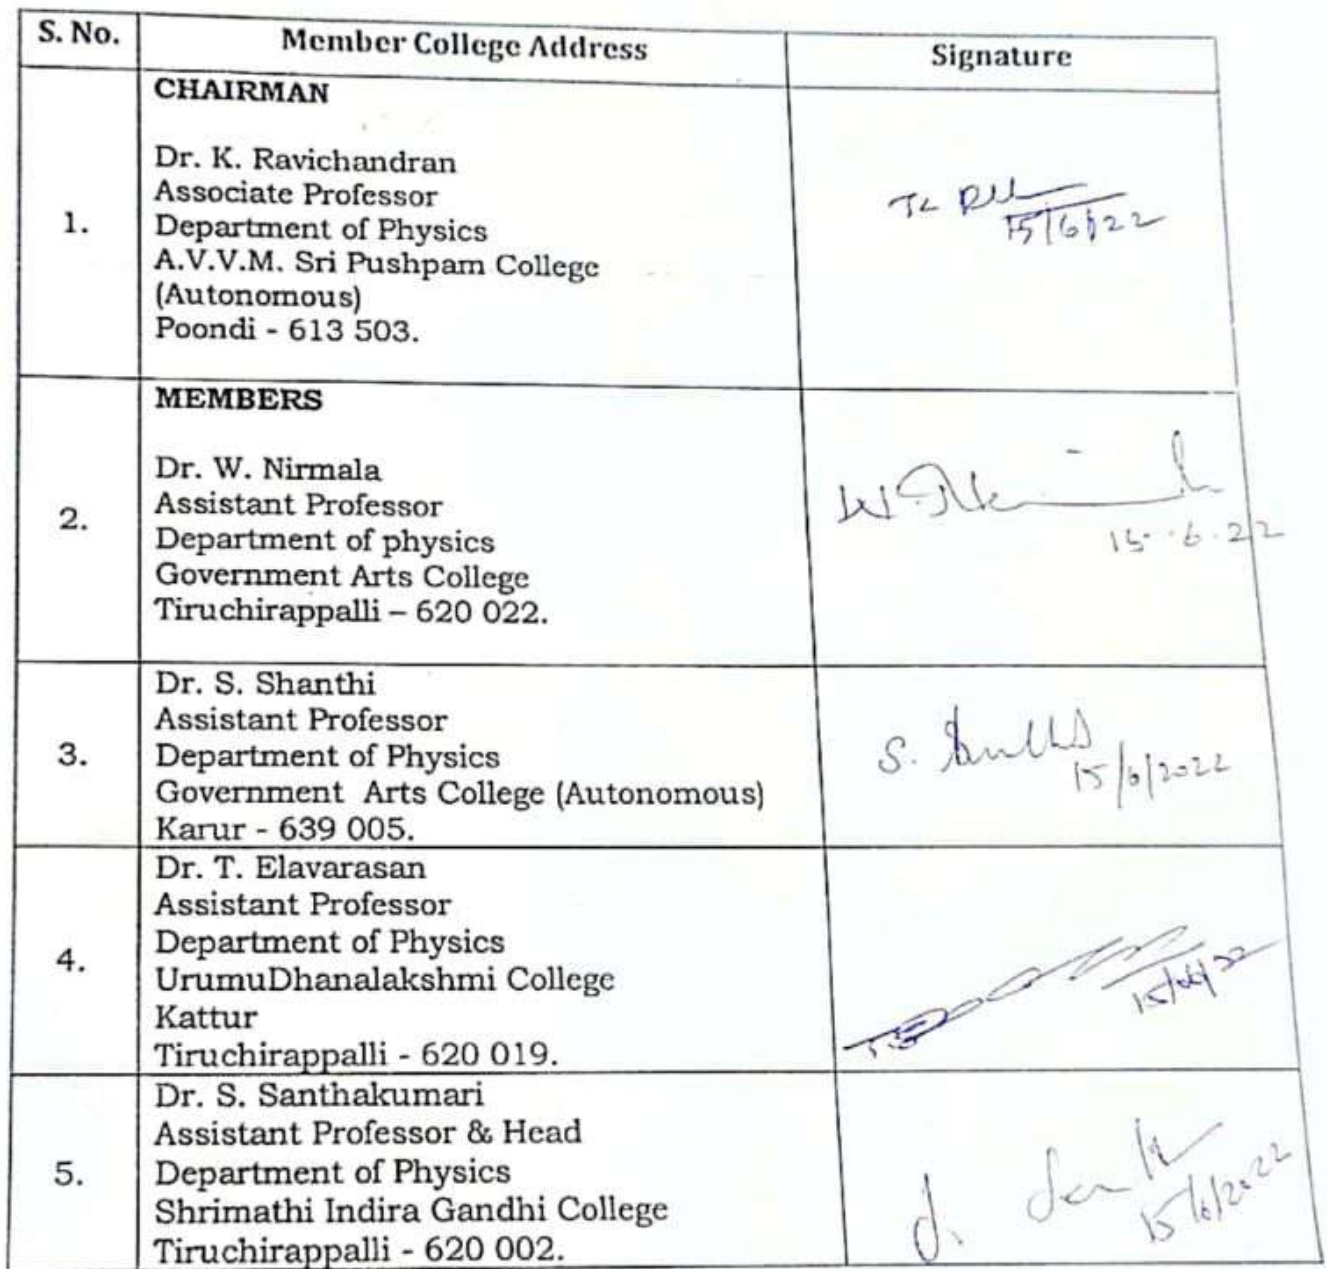 S. No. Member College Address Signature
CHAIRMAN
1.
Dr. K. Ravichandran
Associate Professor
Department of Physics
A.V.V.M. Sri Pushpam College
(Autonomous)
Poondi - 613 503.
15/6/22
MEMBERS
2.
Dr. W. Nirmala
Assistant Professor
Department of physics
Government Arts College
Tiruchirappalli – 620 022.
W.
15.6.22
3.
Dr. S. Shanthi
Assistant Professor
Department of Physics
Government Arts College (Autonomous)
Karur - 639 005.
S.
15/6/2022
4.
Dr. T. Elavarasan
Assistant Professor
Department of Physics
UrumuDhanalakshmi College
Kattur
Tiruchirappalli - 620 019.
15/06/22
5.
Dr. S. Santhakumari
Assistant Professor & Head
Department of Physics
Shrimathi Indira Gandhi College
Tiruchirappalli - 620 002.
15/6/2022